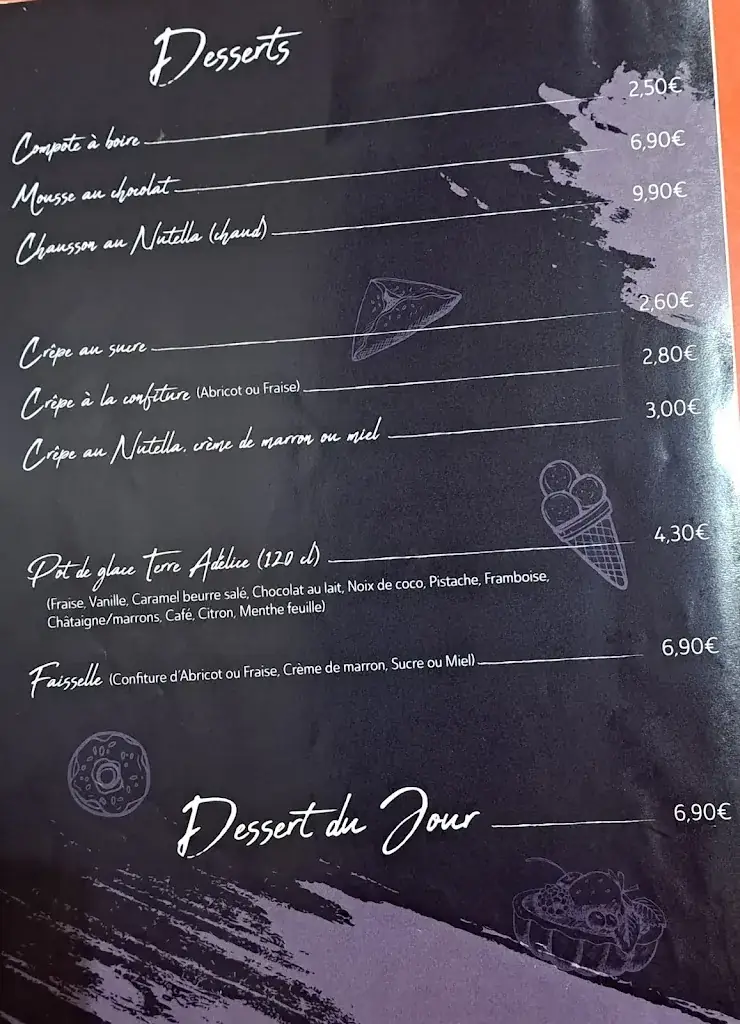 Desserts
Compote à boire 2,50€
Mousse au chocolat 6,90€
Chausson au Nutella (chaud) 9,90€
Crêpe au sucre 2,60€
Crêpe à la confiture (Abricot ou Fraise) 2,80€
Crêpe au Nutella, crème de marron ou miel 3,00€
Pot de glace Terre Adélice (120 cl) 4,30€
(Fraise, Vanille, Caramel beurre salé, Chocolat au lait, Noix de coco, Pistache, Framboise,
Châtaigne/marrons, Café, Citron, Menthe feuille)
Faisselle (Confiture d'Abricot ou Fraise, Crème de marron, Sucre ou Miel) 6,90€
Dessert du Jour 6,90€